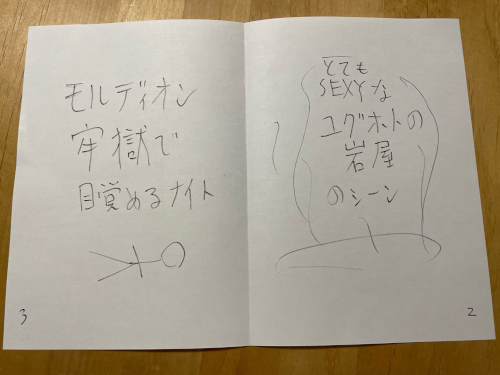 とても
SEXYな
ユグホトの
岩屋
のシーン
2
モルディオン
牢獄で
目覚めるナイト
3